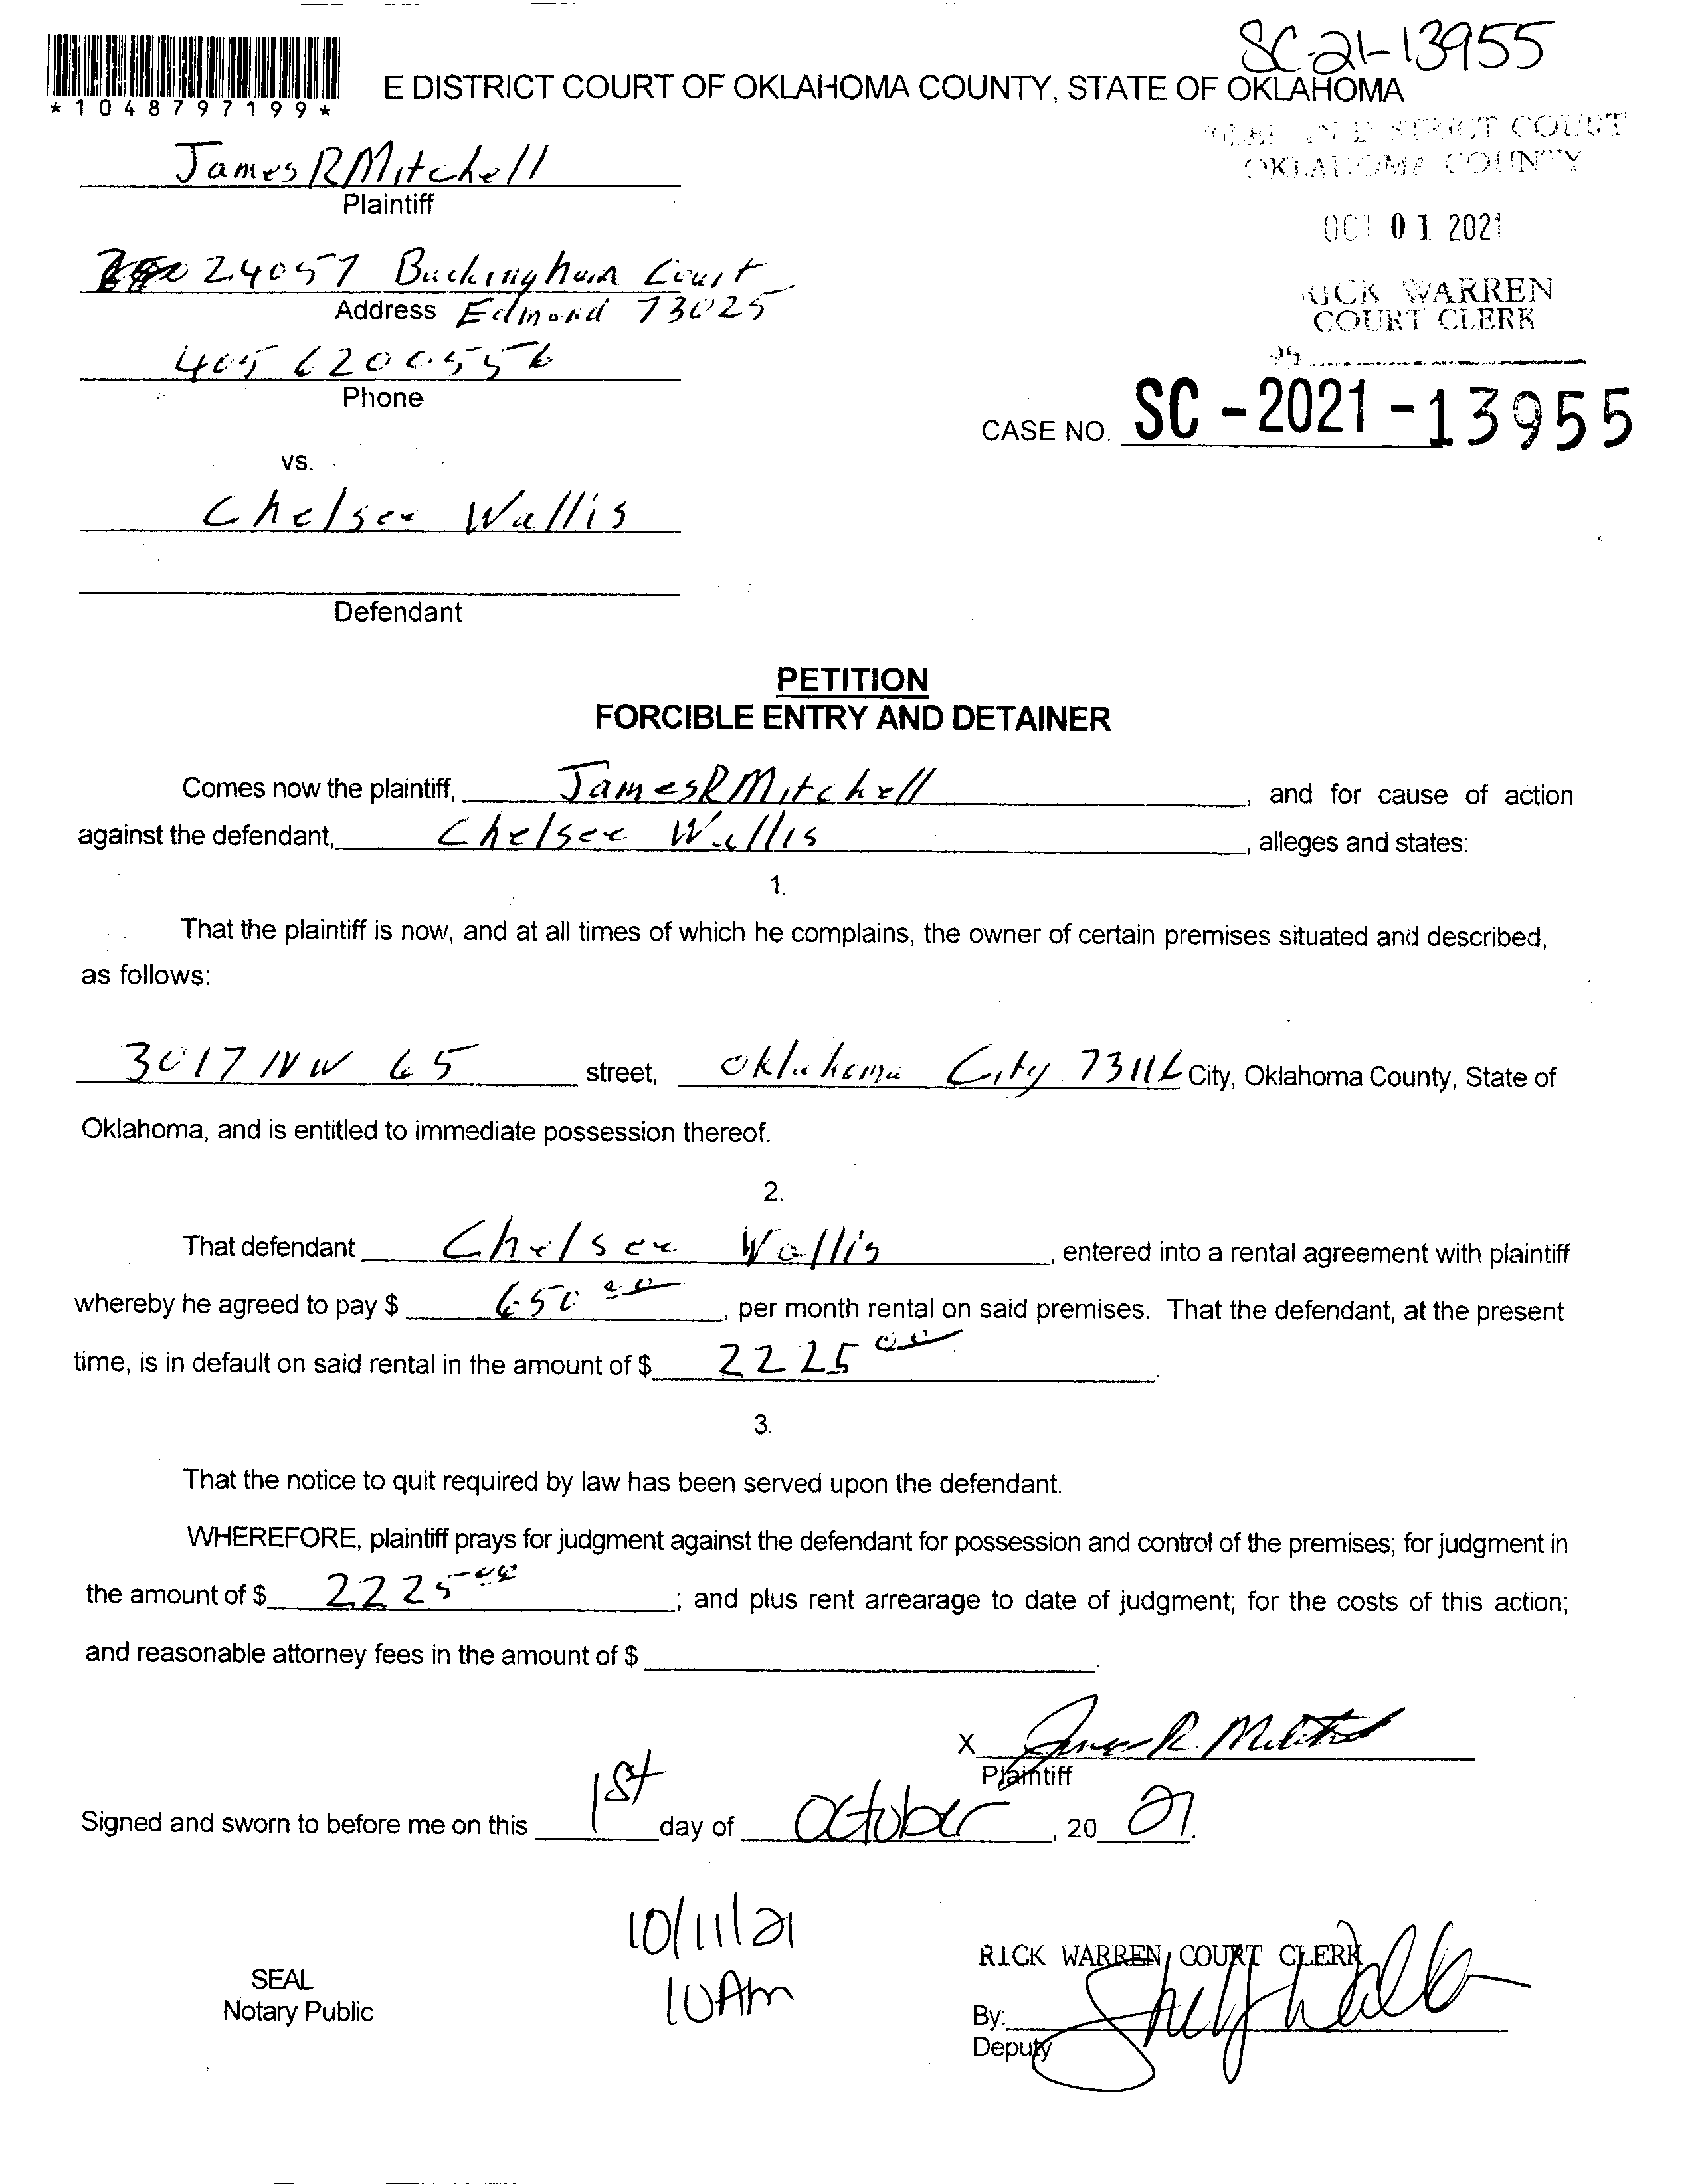 SC-21-13955
*1048797199*
E DISTRICT COURT OF OKLAHOMA COUNTY, STATE OF OKLAHOMA
DISTRICT COURT
OKLAHOMA COUNTY
James R Mitchell
Plaintiff
OCT 01 2021
24057 Buckingham Court
Address Edmond 73025
RICK WARREN
COURT CLERK
405 6200556
Phone
CASE NO. SC-2021-13955
vs.
Chelsee Wallis
Defendant
PETITION
FORCIBLE ENTRY AND DETAINER
Comes now the plaintiff, James R Mitchell, and for cause of action
against the defendant, Chelsee Wallis, alleges and states:
1.
That the plaintiff is now, and at all times of which he complains, the owner of certain premises situated and described,
as follows:
3017 NW 65 street, Oklahoma City 73116 City, Oklahoma County, State of
Oklahoma, and is entitled to immediate possession thereof.
2.
That defendant Chelsee Wallis, entered into a rental agreement with plaintiff
whereby he agreed to pay $ 650 00, per month rental on said premises. That the defendant, at the present
time, is in default on said rental in the amount of $ 2225 00.
3.
That the notice to quit required by law has been served upon the defendant.
WHEREFORE, plaintiff prays for judgment against the defendant for possession and control of the premises; for judgment in
the amount of $ 2225 00; and plus rent arrearage to date of judgment; for the costs of this action;
and reasonable attorney fees in the amount of $ .
X James R Mitchell
Plaintiff
Signed and sworn to before me on this 1st day of October, 20 21.
10/11/21
10Am
RICK WARREN, COURT CLERK
SEAL
Notary Public
By:
Deputy